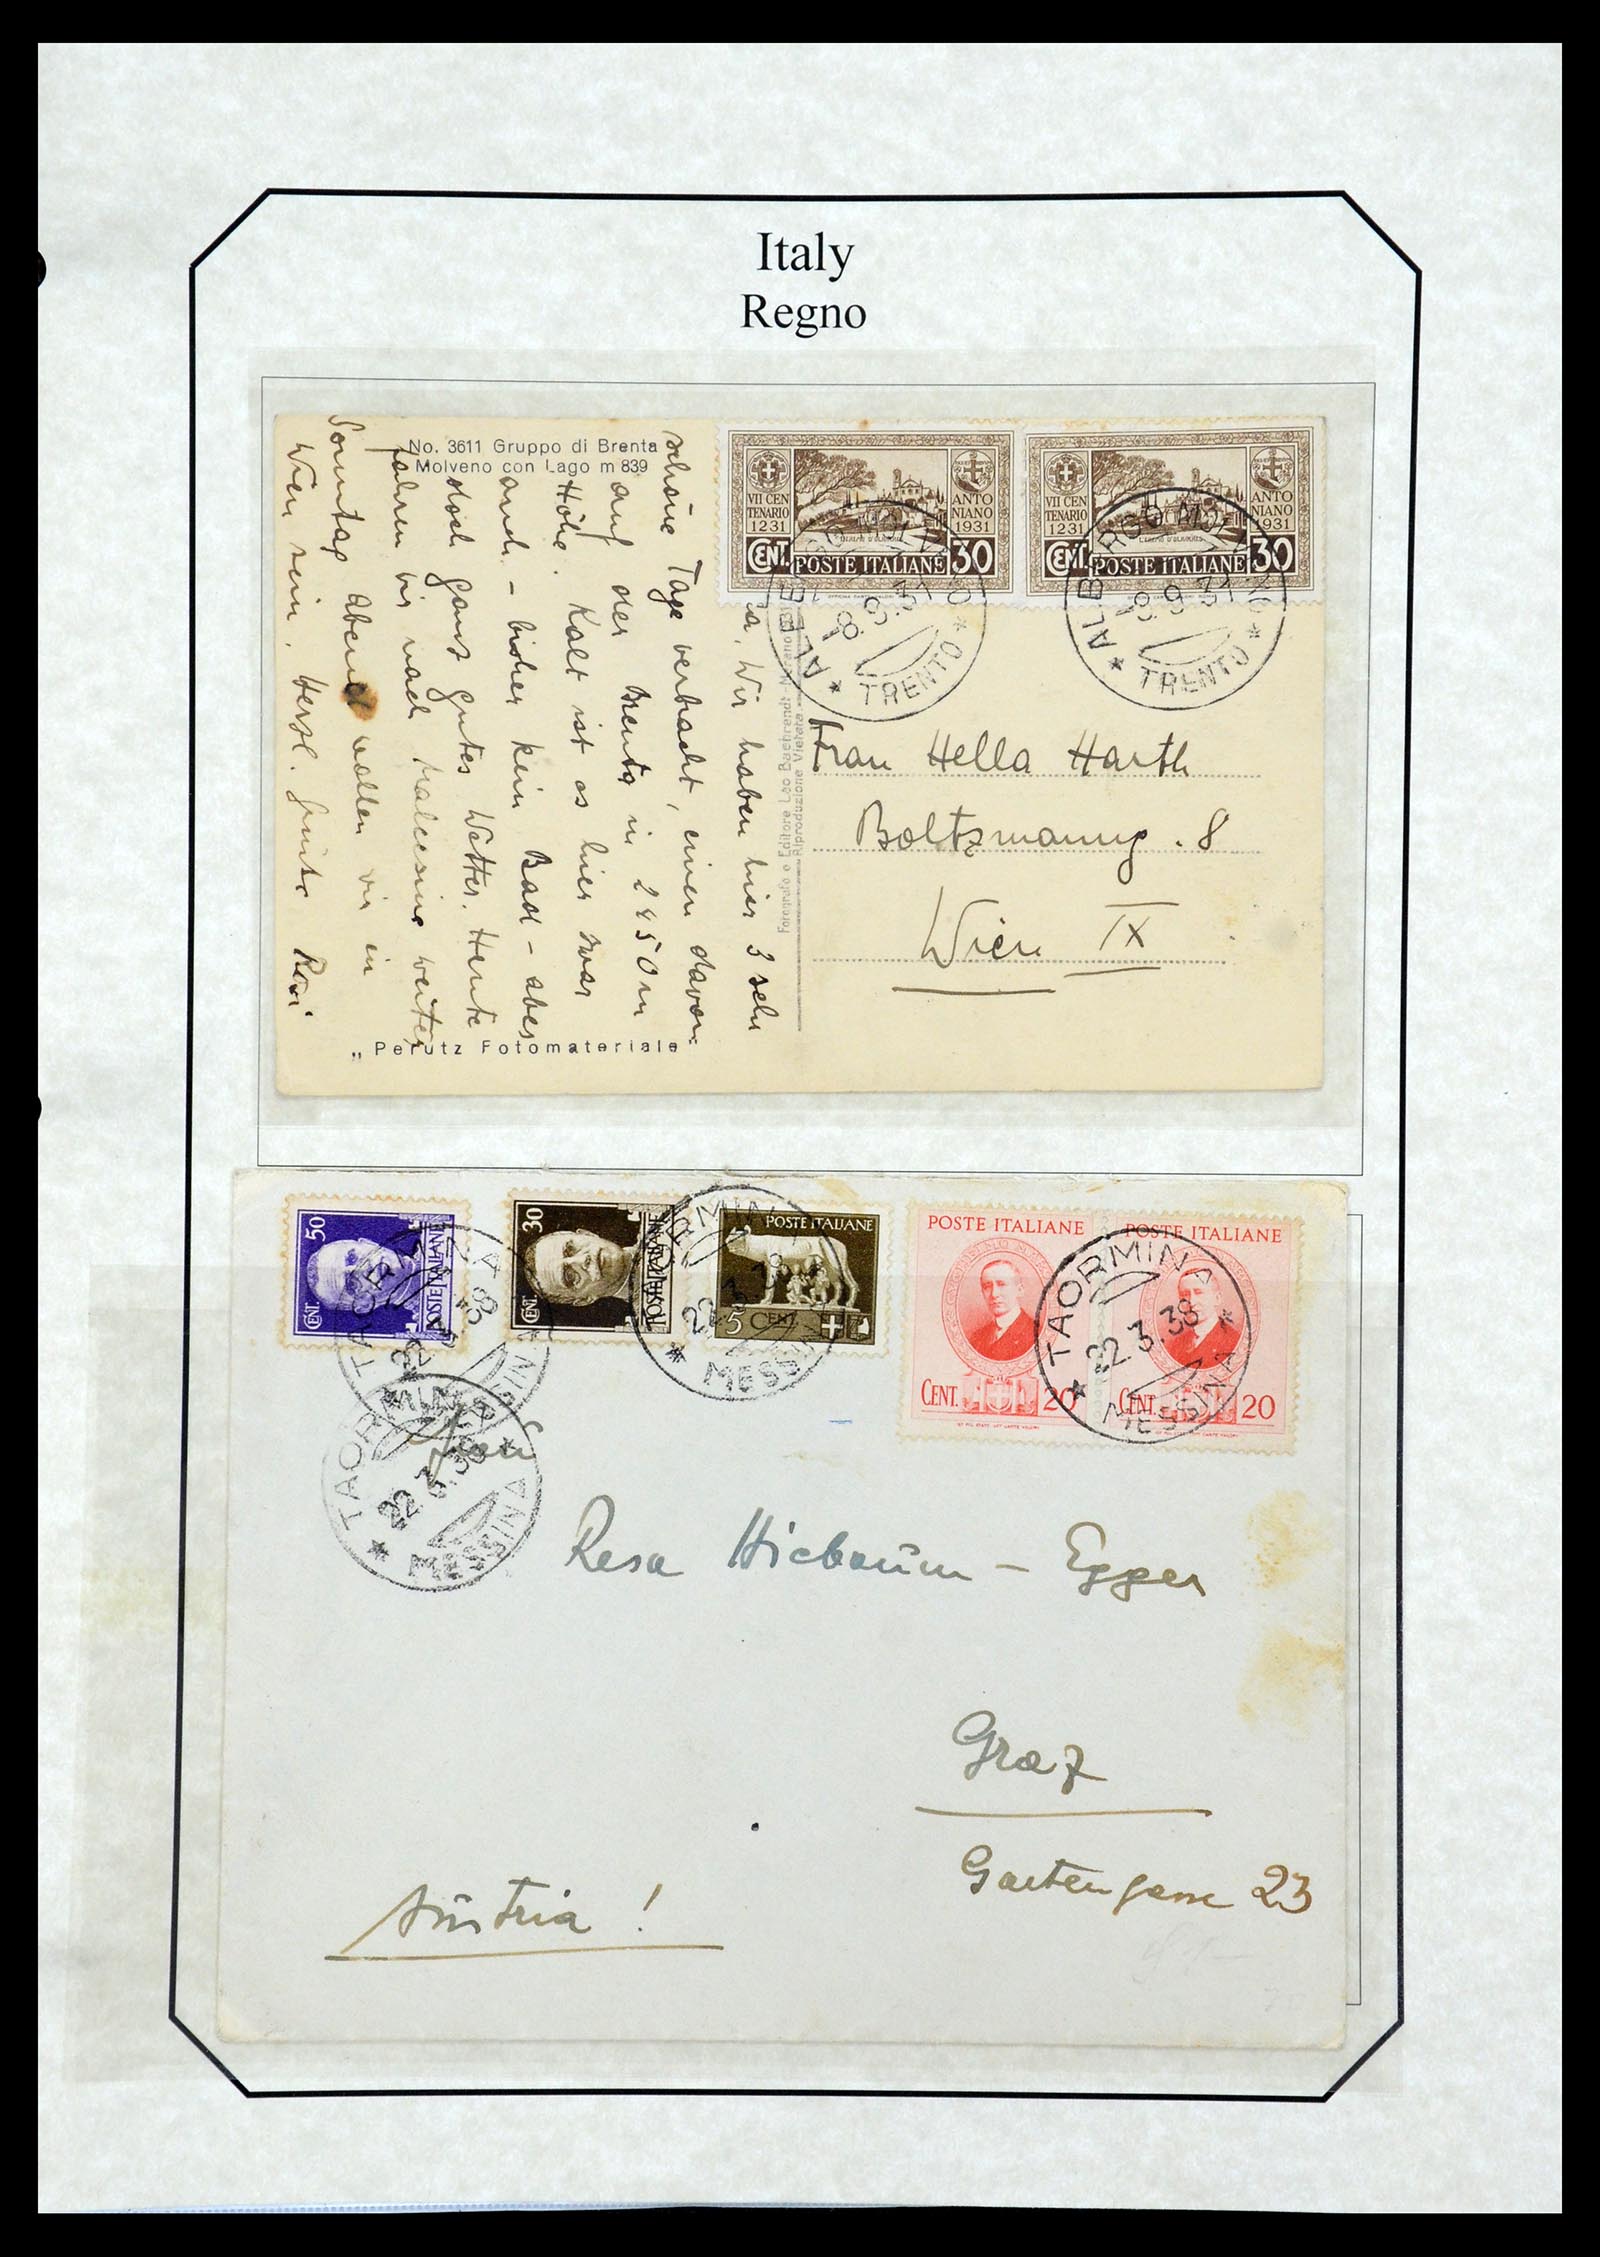 Italy
Regno
No. 3611 Gruppo di Brenta
Molveno con Lago m 839
VII CEN
TENARIO
1231
ANTO
NIANO
1931
CENT.
POSTE ITALIANE
30
VII CEN
TENARIO
1231
ANTO
NIANO
1931
CENT.
POSTE ITALIANE
30
* ALBERGO MOLVENO *
18.9.31
TRENTO
* ALBERGO MOLVENO *
18.9.31
TRENTO
Wir haben hier 3 sehr
schöne Tage verbracht, einen davon
auf der Brenta in 2450 m
Höhe. Kalt ist es hier zwar
auch - bisher kein Bad - aber
doch ganz gutes Wetter. Heute
fahren wir nach Malcesine weiter
Sonntag abend wollen wir in
Wien sein. Herzl. Grüße
Fotografo e Editore Leo Baehrendt - Merano
Riproduzione Vietata
Frau Hella Harth
Boltzmanng. 8
Wien IX
„Perutz Fotomateriale“
50
CENT.
POSTE ITALIANE
30
CENT.
POSTE ITALIANE
POSTE ITALIANE
5 CENT.
POSTE ITALIANE
CENT. 20
POSTE ITALIANE
CENT. 20
TAORMINA
22.3.38
MESSINA
TAORMINA
22.3.38
MESSINA
TAORMINA
22.3.38
* MESSINA *
TAORMINA
22.3.38
* MESSINA *
Frau
Resa Hiebaum - Egger
Graz
Gartengasse 23
Austria !